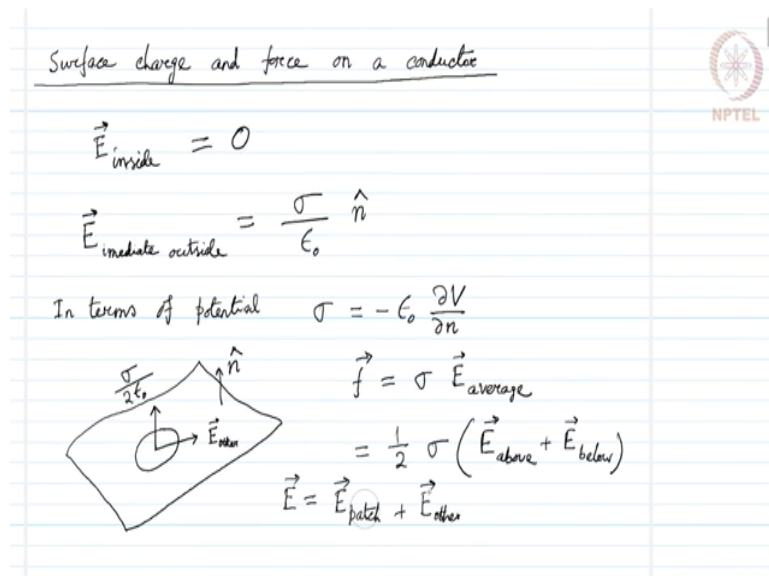 Surface charge and force on a conductor
NPTEL
E⃗ inside = 0
E⃗ imediate outside = σ/ϵ₀ n̂
In terms of potential σ = - ϵ₀ ∂V/∂n
σ/2ϵ₀ n̂ E⃗ other
f⃗ = σ E⃗ average
= 1/2 σ (E⃗ above + E⃗ below)
E⃗ = E⃗ patch + E⃗ other